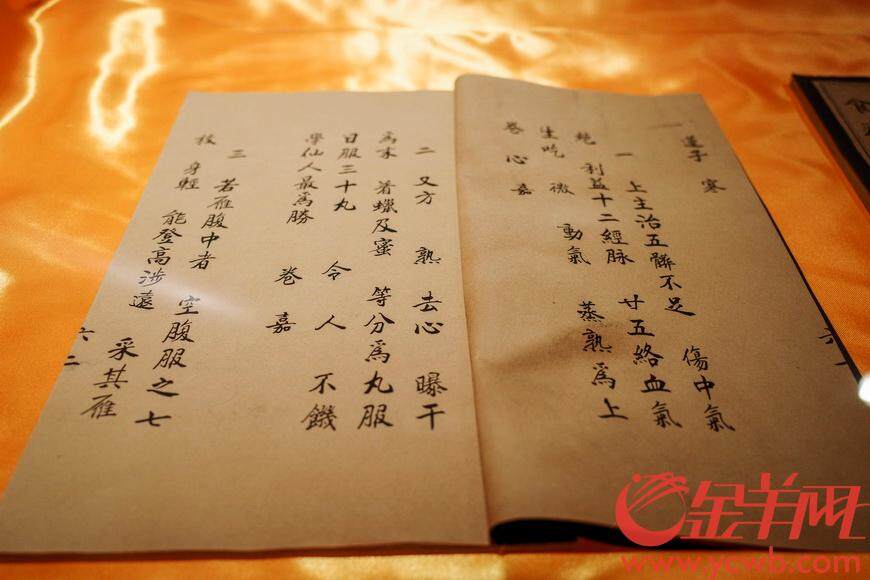 蓮子 寒
一 上主治五髒不足 傷中氣
絕 利益十二經脉 廿五絡血氣
生吃 微 動氣 蒸熟為上
卷 心 嘉
六一
二 又方 熟 去心 曝干
為末 着蠟及蜜 等分為丸服
日服三十丸 令人不饑
學仙人最為勝 卷嘉
三 若雁腹中者 空腹服之七
枚 身輕 能登高涉遠 采其雁
六二
食
金羊网
www.ycwb.com